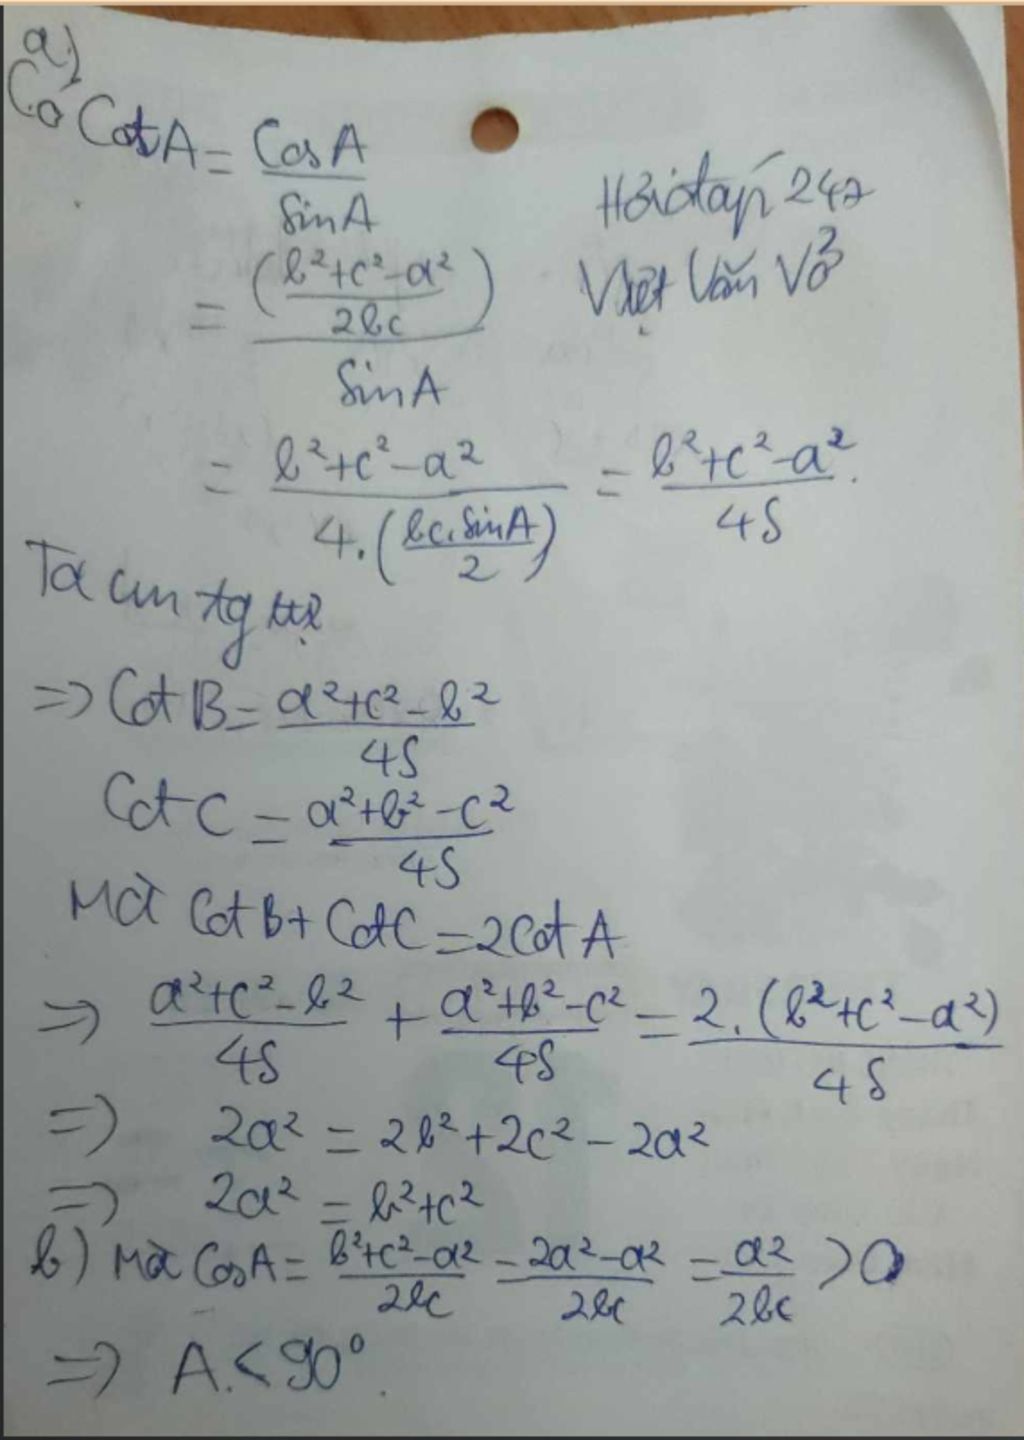 a)
Có Cot A = Cos A / Sin A
Hỏi đáp 247
Việt Văn Võ
= ((b²+c²-a²)/2bc) / Sin A
= (b²+c²-a²) / (4.(bc.SinA / 2)) = (b²+c²-a²) / 4S.
Ta cm tg tự
=> Cot B = (a²+c²-b²) / 4S
Cot C = (a²+b²-c²) / 4S
Mà Cot B + Cot C = 2Cot A
=> (a²+c²-b²) / 4S + (a²+b²-c²) / 4S = 2.(b²+c²-a²) / 4S
=> 2a² = 2b²+2c²-2a²
=> 2a² = b²+c²
b) Mà Cos A = (b²+c²-a²) / 2bc = (2a²-a²) / 2bc = a² / 2bc > 0
=> A < 90°.